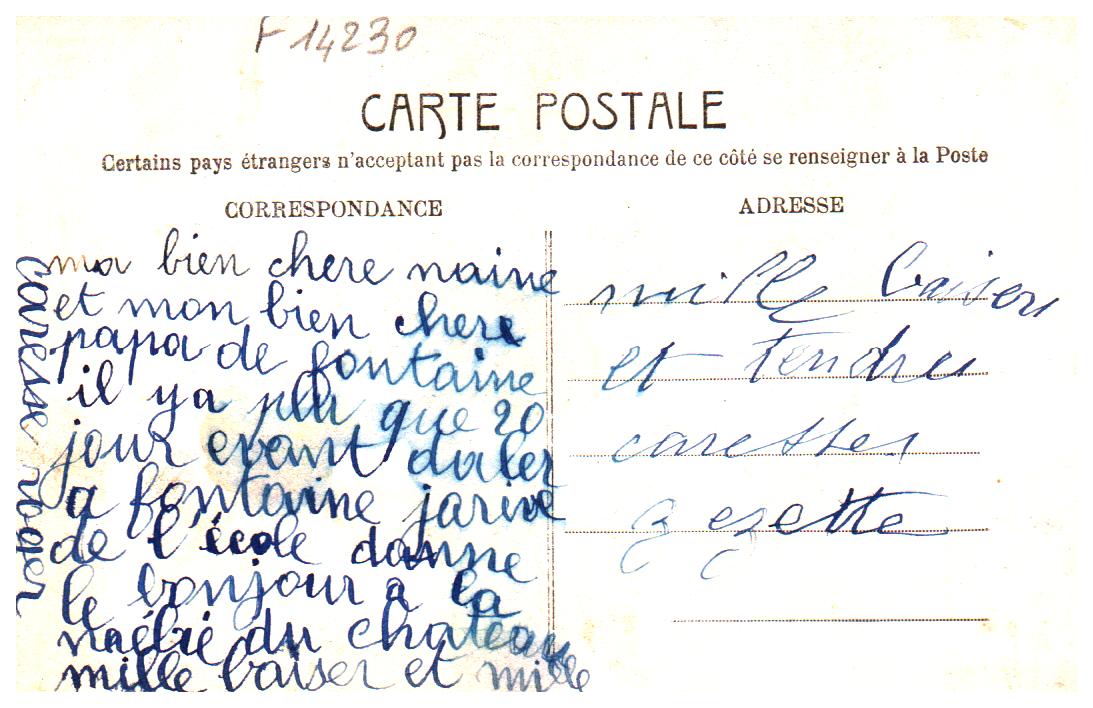 F 14230
CARTE POSTALE
Certains pays étrangers n'acceptant pas la correspondance de ce côté se renseigner à la Poste
CORRESPONDANCE
ma bien chere naine
et mon bien chere
papa de fontaine
il y a plu que 20
jour evant daler
a fontaine jarive
de l'école donne
le bonjour a la
du chateau
mille baiser et mille
caresse roger
ADRESSE
mille baisers
et tendres
caresses
zezette